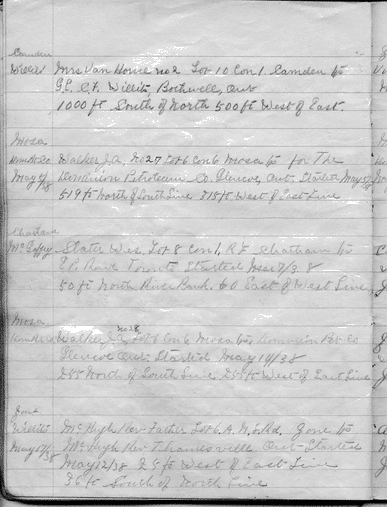 Camden
Willits Mrs Van Horne no 2 Lot 10 Con 1 Camden tp
G.L. C.F. Willits Bothwell, Ont
1000 ft South of North 500 ft West of East
Mosa
Walker J.A. No 27 Lot 6 Con 6 Mosa tp for The
May 9/38 Dominion Petroleum Co. Glencoe, Ont. Started May
519 ft North of South Line 715 ft West of East Line
Chatham
McGaffey Slater Wes. Lot 8 Con 1, R.F. Chatham tp
Toronto Started 9/38
50 ft North River Bank. 60 East of West Line
Mosa
Walker J.A. no 28 Lot 6 Con 6 Mosa tp. Dominion Pet Co
Glencoe Ont. Started May 14/38
255 North of South Line 255 ft West of East Line
Zone
Willits McHugh Rev Father Lot 6 A. G.S. Rd. Zone tp
May 17/38 McHugh Rev Thamesville Ont Started
May 12/38 25 ft West of East Line
36 ft South of North Line